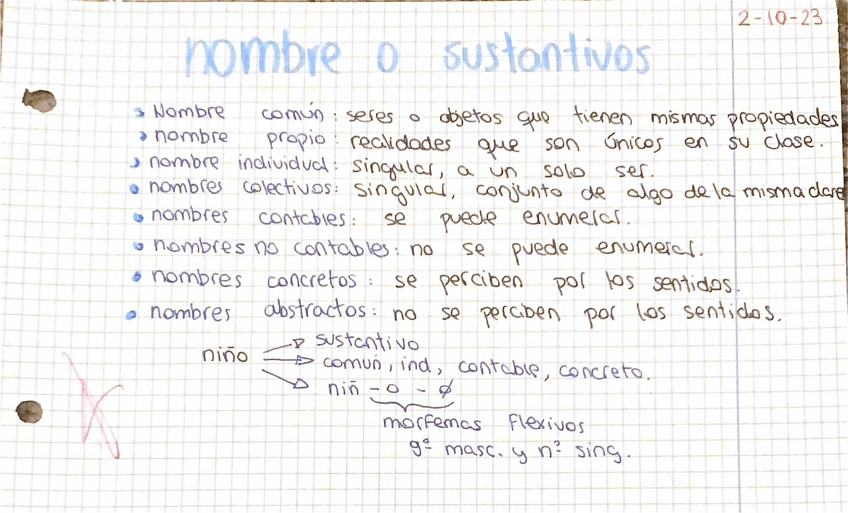 2-10-23
nombre o sustantivos
Nombre común: seres o objetos que tienen mismas propiedades
nombre propio: realidades que son únicos en su clase.
nombre individual: singular, a un solo ser.
nombres colectivos: singular, conjunto de algo de la misma clase
nombres contables: se puede enumerar.
nombres no contables: no se puede enumerar.
nombres concretos: se perciben por los sentidos.
nombres abstractos: no se perciben por los sentidos.
sustantivo
niño común, ind, contable, concreto.
niñ - o - ø
morfemas flexivos
gº masc. y nº sing.